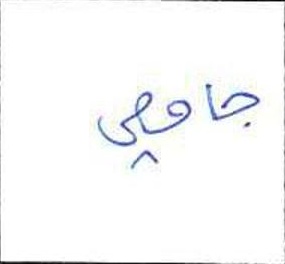 جامعي